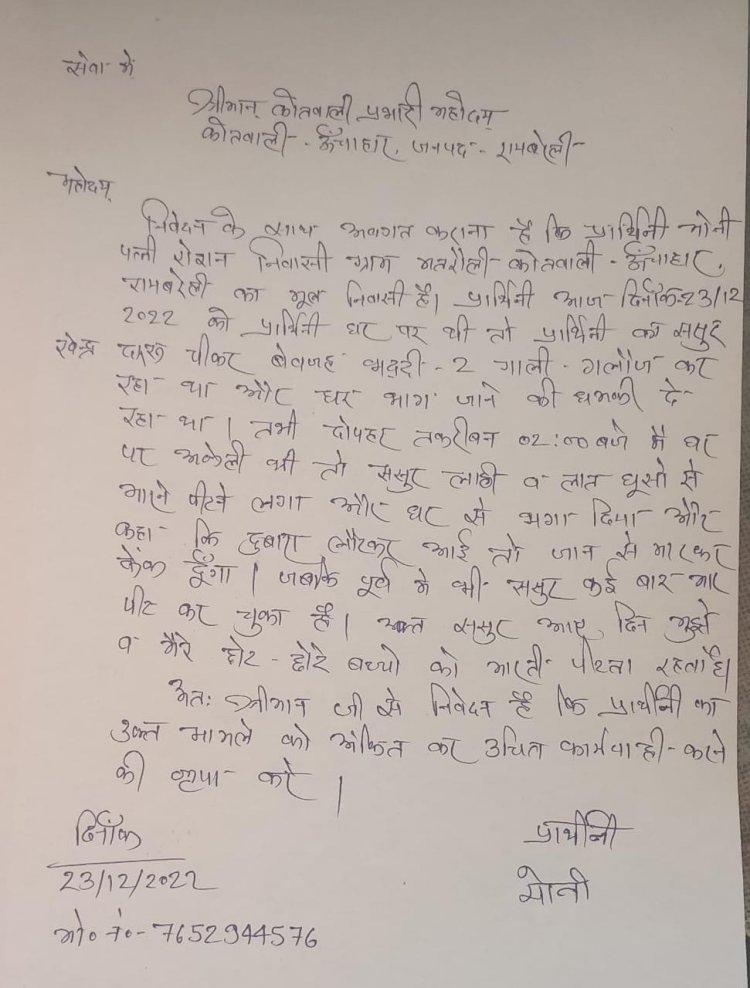 सेवा में
श्रीमान् कोतवाली प्रभारी महोदय
कोतवाली - ऊँचाहार, जनपद - रायबरेली
महोदय
निवेदन के साथ अवगत कराना है कि प्रार्थिनी मोनी
पत्नी रोशन निवासी ग्राम मतरौली - कोतवाली - ऊँचाहार,
रायबरेली का मूल निवासी है। प्रार्थिनी आज दिनाँक-23/12
2022 को प्रार्थिनी घर पर थी तो प्रार्थिनी का ससुर
दारू पीकर बेवजह भद्दी - 2 गाली - गलौज कर
रहा था और घर भाग जाने की धमकी दे
रहा था। तभी दोपहर तकरीबन 02:00 बजे मै घर
पर अकेली थी तो ससुर लाठी व लात घूसो से
मारने पीटने लगा और घर से भगा दिया और
कहा कि दुबारा लौटकर आई तो जान से मारकर
फेंक दूँगा। जबकि पूर्व मे भी ससुर कई बार मार
पीट कर चुका है। उक्त ससुर आए दिन मुझे
व मेरे छोटे - छोरे बच्चो को मारती पीटता रहता है।
अतः श्रीमान जी से निवेदन है कि प्रार्थीनी का
उक्त मामले को अंकित कर उचित कार्यवाही - करने
की कृपा करे।
दिनाँक
प्रार्थीनी
23/12/2022
मोनी
मो० नं०- 7652944576